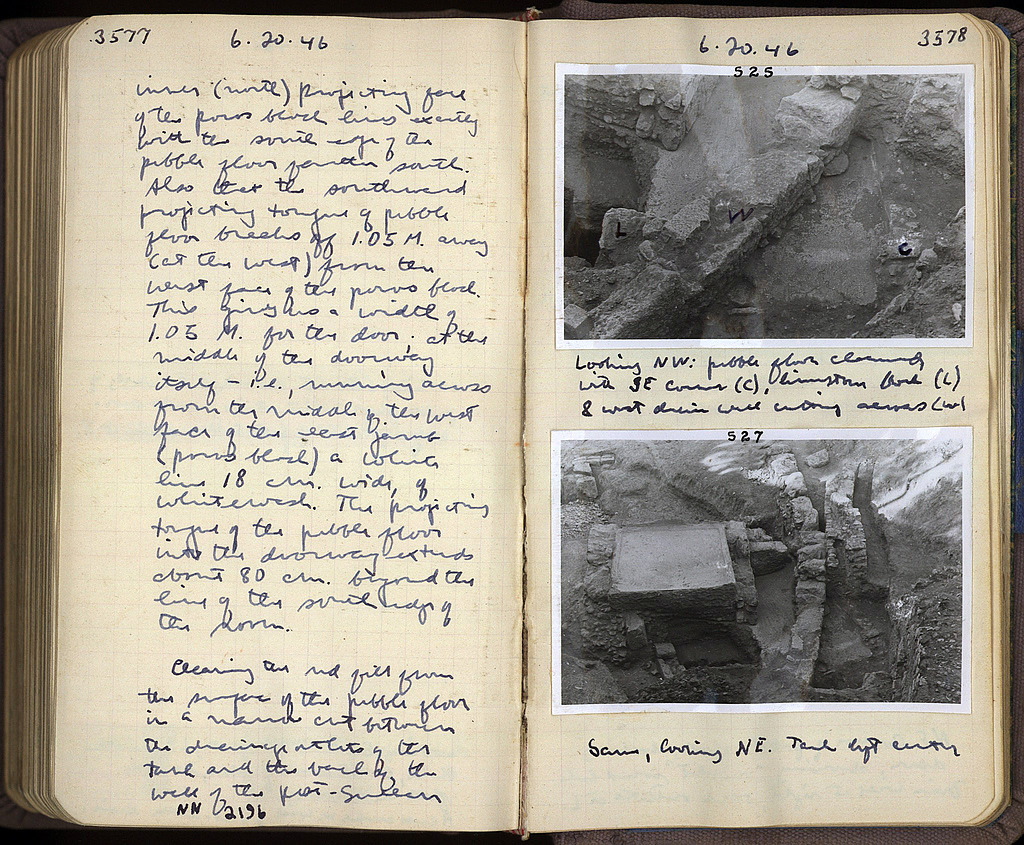 3577
6.20.46
inner (north) projecting face
of the poros block lines exactly
with the south edge of the
pebble floor farther south.
Also that the southward
projecting tongue of pebble
floor breaks off 1.05 M. away
(at the west) from the
west face of the poros block.
This gives us a width of
1.05 M. for the door. At the
middle of the doorway
itself – i.e., running across
from the middle of the west
face of the east jamb
(poros block) a white
line 18 cm. wide, of
whitewash. The projecting
tongue of the pebble floor
into the doorway extends
about 80 cm. beyond the
line of the south edge of
the room.
Clearing the red fill from
the surface of the pebble floor
in a narrow cut between
the drainage outlets of the
tank and the back of the
wall of the post-Sullan
NN 2196
3578
6.20.46
525
L
W
C
Looking NW: pebble floor cleaned
with SE corner (C), limestone block (L)
& west drain wall cutting across (W)
527
Same, looking NE. Tank left center